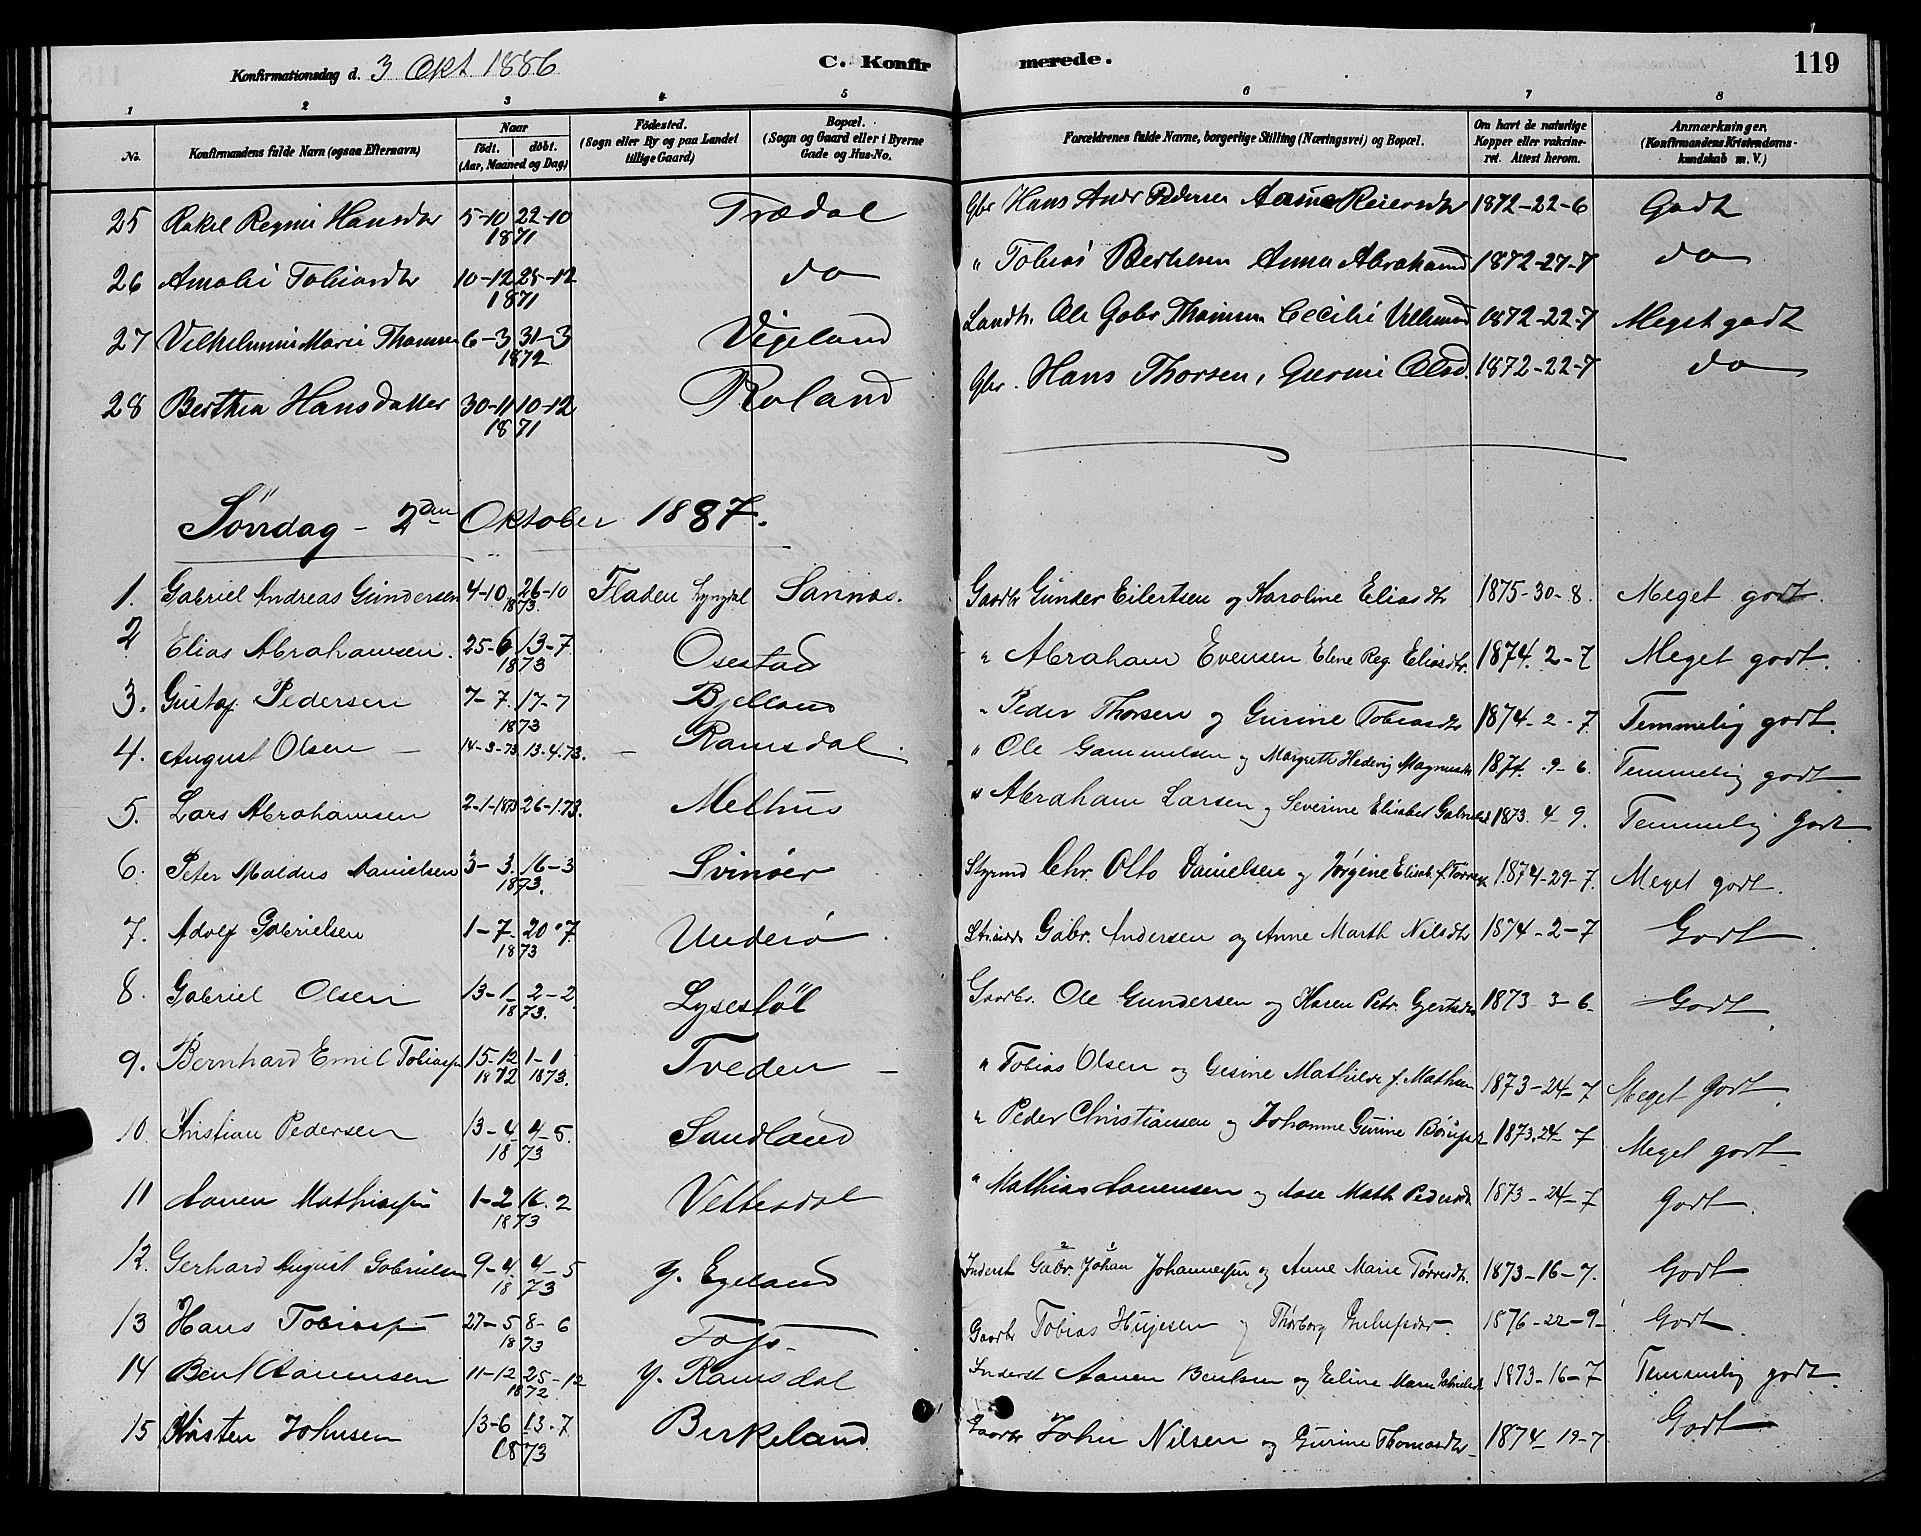 Konfirmationsdag d. 3 Okt 1886 C. Konfirmerede. 119
1 2 3 4 5 6 7 8
No. Konfirmandens fulde Navn (ogsaa Efternavn) Naar født. døbt. (Aar, Maaned og Dag) Födested. (Sogn eller By og paa Landet tillige Gaard) Bopæl. (Sogn og Gaard eller i Byerne Gade og Hus-No. Forældrenes fulde Navne, borgerlige Stilling (Næringsvei) og Bopæl. Om havt de naturlige Kopper eller vakcineret. Attest herom. Anmærkninger (Konfirmandens Kristendomskundskab m. V.)
25 Rakel Regine Hansdtr 5-10 22-10 1871 Trædal Gbr Hans Andr Pedersen Reiersdtr 1872-22-6 Godt
26 Amalie Tobiasdtr 10-12 28-12 1871 do " Tobias Anna Abrahamsd 1872-27-7 do
27 Vilhelmine Marie Thomsen 6-3 31-3 1872 Vigeland Landh. Ole Gabr Thomsen Cecilie 1872-22-7 Meget godt
28 Berthea Hansdatter 30-11 10-12 1871 Roland Gbr. Hans Thorsen, Gurine Olsd. 1872-22-7 do
Søndag - 2den Oktober 1887.
1. Gabriel Andreas Gundersen 4-10 26-10 1873 Fladen Lyngdal Sannæs. Gaardbr Gunder Eilertsen og Karoline Eliasdtr 1875-30-8. Meget godt.
2 Elias Abrahamsen. 25-6 13-7 1873 Osestad " Abraham Evensen Elene Reg. Eliasdtr. 1874. 2-7 Meget godt.
3. Gustaf Pedersen 7-7. 17-7 1873 Bjelland " Peder Thorsen og Gurine Tobiasdtr 1874-2-7. Temmelig godt.
4. August Olsen 14-3-73 13.4.73. Ramsdal. " Ole Gammelsen og Margrethe Hedevig Magnusdtr 1874.-9-6. Temmelig godt.
5. Lars Abrahamsen 2-1-1873 26-1.73. Melhus " Abraham Larsen og Severine Elisabet Gabrielsd 1873. 4-9. Temmelig Godt.
6. Peter Maldus Danielsen 3-3. 16-3 1873. Svinöer Styrmd Chr. Otto Danielsen og Jørgine Elisab. f. 1874-29-7. Meget godt.
7. Adolf Gabrielsen 1-7. 20.7. 1873 Underö Gabr. Andersen og Anne Marth Nilsdtr 1874-2-7 Godt
8. Gabriel Olsen 13-1- 2-2. 1873. Lysestöl Gaardbr. Ole Gundersen og Karen Petr. Gjertsdtr 1873-3-6- Godt.
9. Bernhard Emil Tobiasen 15-12 1872 1-1 1873. Tveden " Tobias Olsen og Gesine Mathilde f. Mathsen 1873-24-7 Meget Godt.
10. Kristian Pedersen 13-4 4-5. 1873 Sandland " Peder Christiansen og Johanne Gurine 1873.24-7 Meget godt.
11 Aanen Mathiassen 1-2 16.2 1873 Vettesdal " Mathias Aanensen og Aase Math Pedersdtr 1873-24-7 Godt.
12. Gerhard August Gabrielsen 9-4. 4-5 1873 Y. Egeland Inderst Gabr. Johan Johannessen og Anne Marie Tørresdtr. 1873-16-7. Godt
13 Hans Tobiassen 27-5 8-6 1873 Gaardbr Tobias og Thorborg 1876-22-9- Godt.
14 Bent Aanensen 11-12 25-12 1872. Y. Ramsdal Inderst Aanen Bentsen og Eline Marie Gabrielsdtr 1873-16-7 Temmelig godt.
15 Kristen Johnsen 13-6 13-7 1873 Birkeland. Gaardbr John Nilsen og Gurine Thomasdtr 1874-19-7 Godt